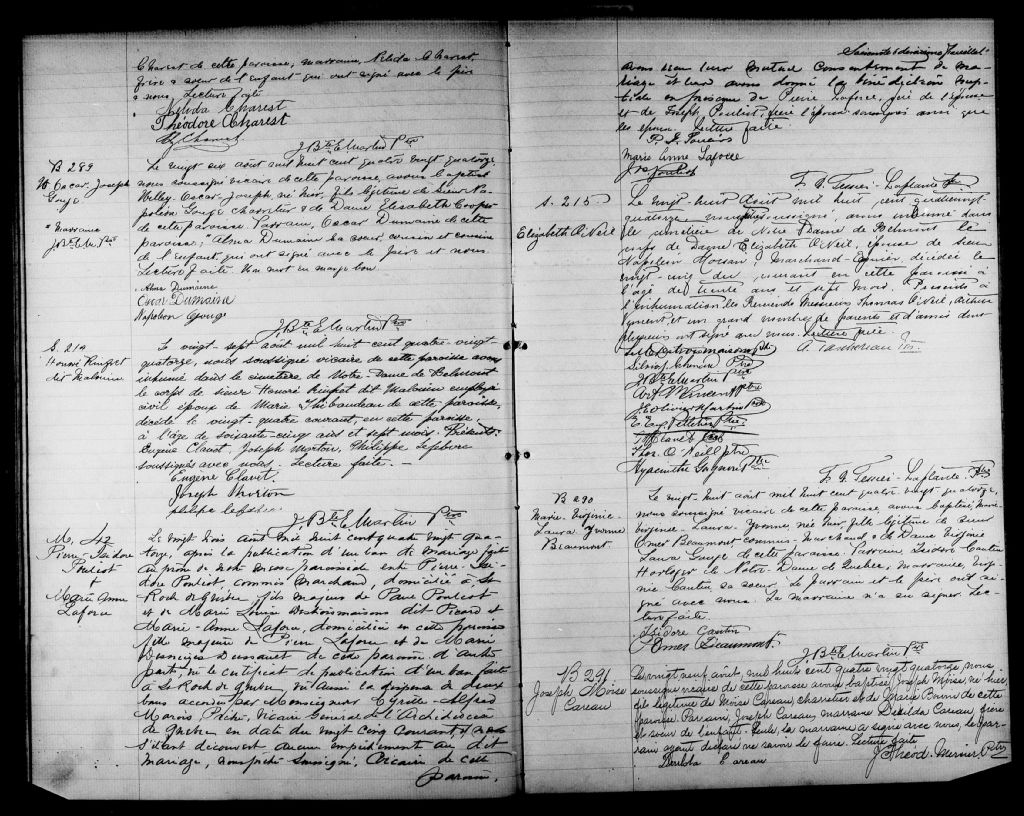 Charest de cette paroisse, marraine, Nelida Charest,
frère & sœur de l'enfant qui ont signé avec le père
& nous. Lecture faite
Nelida Charest
Théodore Charest
J. Bte E. Martin Ptre
B 289
W. Oscar Joseph
Gouge
Le vingt six août mil huit cent quatre vingt quatorze,
nous soussigné vicaire de cette paroisse, avons baptisé
Willey Oscar Joseph, né hier, fils légitime de sieur Na-
poléon Gouge charretier & de Dame Elisabeth Cooper
de cette paroisse. Parrain, Oscar Dumaine de cette
paroisse; Alma Dumaine sa sœur, cousin et cousine
de l'enfant, qui ont signé avec le père et nous.
Lecture faite. Un mot en marge bon.
" Marraine
J. Bte E. M. Ptre
Alma Dumaine
Oscar Dumaine
Napoléon Gouge
J. Bte E. Martin Ptre
S. 214
Honoré Rinfret
dit Malouin
Le vingt-sept août mil huit cent quatre-vingt-
quatorze, nous soussigné vicaire de cette paroisse avons
inhumé dans le cimetière de Notre Dame de Belmont
le corps de sieur Honoré Rinfret dit Malouin employé
civil époux de Marie Thibaudeau de cette paroisse,
décédé le vingt-quatre courant, en cette paroisse
à l'âge de soixante-cinq ans et sept mois. Présents:
Eugène Clavet, Joseph Morton, Philippe Lefebvre
soussignés avec nous. Lecture faite.
Eugène Clavet
Joseph Morton
J. Bte E. Martin Ptre
M. 42
Pierre-Isidore
Pouliot
&
Marie Anne
Laforce
Le vingt huit août mil huit cent quatre vingt qua-
torze, après la publication d'un ban de mariage faite
au prône de notre messe paroissiale entre Pierre-Isi-
dore Pouliot, commis marchand, domicilié à St
Roch de Québec, fils majeur de Paul Pouliot
et de Marie Louise Destroismaisons dit Picard et
Marie-Anne Laforce, domiciliée en cette paroisse
fille majeure de Pierre Laforce et de Marie
Dussault de cette paroisse d'autre
part; vu le certificat de publication d'un ban faite
à St Roch de Québec, vu aussi la dispense de deux
bans accordée par Monseigneur Cyrille-Alfred
Marois Ptre, Vicaire Général de l'Archidiocèse
de Québec en date du vingt cinq courant;
s'étant découvert aucun empêchement au dit
mariage, nous prêtre soussigné, Vicaire de cette
paroisse,
Soixante deuxième feuillet.
avons reçu leur mutuel consentement de ma-
riage et leur avons donné la bénédiction nup-
tiale en présence de Pierre Laforce, père de l'épouse
et de Joseph Pouliot, frère de l'époux soussignés ainsi que
les époux. Lecture faite.
P. I. Pouliot
Marie Anne Laforce
Jos Pouliot
F. X. Tessier-Laplante Ptre
S. 215.
Elizabeth O'Neil
Le vingt-huit Août mil huit cent quatrevingt
quatorze, nous prêtre soussigné, avons inhumé dans
le cimetière de Notre Dame de Belmont le
corps de Dame Elizabeth O'Neil, épouse de sieur
Napoléon Moisan, Marchand-Épicier, décédée le
vingt-cinq du courant en cette paroisse à
l'âge de trente ans et sept mois. Présents à
l'inhumation les Révérends Messieurs Thomas O'Neil, Arthur
Vincent, et un grand nombre de parents et d'amis dont
plusieurs ont signé avec nous. Lecture faite.
A. Taschereau Ptre
J. Bte E. Martin Ptre
Art. Vincent Ptre
J. Olivier Martin Ptre
E. Pelletier Ptre
Thos. O'Neill Ptre
Hyacinthe Gagnon Ptre
F. X. Tessier-Laplante Ptre
B 290
Marie-Virginie-
Laura Yvonne
Beaumont.
Le vingt-huit août mil huit cent quatre vingt quatorze,
nous soussigné vicaire de cette paroisse, avons baptisé, Marie-
Virginie-Laura-Yvonne, née hier, fille légitime de sieur
Omer Beaumont commis-Marchand, & de Dame Virginie
Laura Gouge de cette paroisse. Parrain, Isidore Cantin
Horloger de Notre Dame de Québec, marraine, Virgi-
nie Cantin sa sœur. Le parrain et le père ont si-
gné avec nous. La marraine n'a su signer. Lec-
ture faite.
Isidore Cantin
Omer Beaumont.
J. Bte E. Martin Ptre
B 291
Joseph Moïse
Careau
Le vingt neuf août, mil huit cent quatre vingt quatorze, nous
soussigné vicaire de cette paroisse avons baptisé, Joseph Moïse, né hier
fils légitime de Moïse Careau, charretier et de Marie Boivin de cette
paroisse. Parrain, Joseph Careau, marraine Dérilda Careau, frère
et sœur de l'enfant. Seule, la marraine a signé avec nous, le par-
rain ayant déclaré ne savoir le faire. Lecture faite
Derilda Careau
J. Théod. Mercier, Ptre